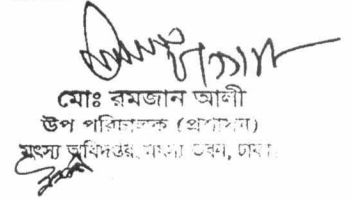 মোঃ রমজান আলী
উপ পরিচালক (প্রশাসন)
মৎস্য অধিদপ্তর, মৎস্য ভবন, ঢাকা।